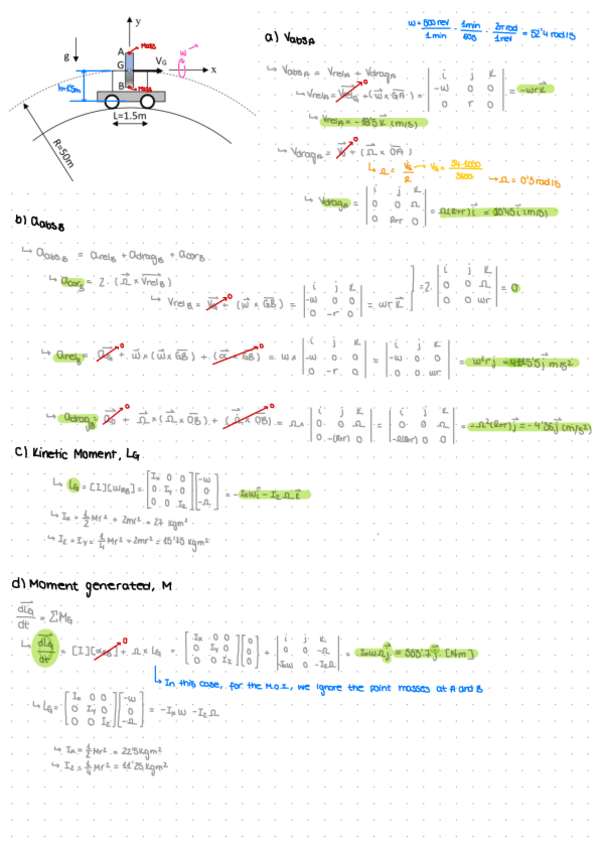 y
A Mass
g
G
V_G
ω
x
h=1.5m
B Mass
L=1.5m
R=50m
ω = 500 rev / 1 min · 1 min / 60s · 2π rad / 1 rev = 52'4 rad/s
a) V abs A
↳ V abs A = V rel A + V drag A
↳ V rel A = V rel G→0 + (ω × GA) = | i j k | -ω 0 0 | 0 r 0 | = -ωr k
V rel A = k (m/s)
↳ V drag A = →0 + (Ω × OA)
↳ Ω = V_G / R → V_G = 54·1000 / 3600 ↳ Ω = 0'3 rad/s
↳ V drag A = | i j k | 0 0 Ω | 0 R+r 0 | = Ω(R+r) i = i (m/s)
b) a abs B
↳ a abs B = a rel B + a drag B + a cor B
↳ a cor B = 2 · (Ω × V rel B)
↳ V rel B = V_G→0 + (ω × GB) = | i j k | -ω 0 0 | 0 -r 0 | = ωr k } = 2 · | i j k | 0 0 Ω | 0 0 ωr | = 0
↳ a rel B = a_G→0 + ω × (ω × GB) + (α × GB)→0 = ω × | i j k | -ω 0 0 | 0 -r 0 | = | i j k | -ω 0 0 | 0 0 ωr | = ω²r j = j m/s²
↳ a drag B = a_0→0 + Ω × (Ω × OB) + (Ω × OB)→0 = Ω × | i j k | 0 0 Ω | 0 -(R+r) 0 | = | i j k | 0 0 Ω | 0 0 | = -Ω²(R+r) j = j (m/s²)
c) Kinetic Moment, L_G
↳ L_G = [I][ω] = [Ix 0 0 | 0 Iy 0 | 0 0 Iz] [-ω | 0 | -Ω] = -Ixω i - IzΩ k
↳ Ix = 1/2 Mr² + 2mr² = 27 Kgm²
↳ Iz = Iy = 1/4 Mr² + 2mr² = 15'75 Kgm²
d) Moment generated, M
dL_G/dt = ΣM_G
↳ dL_G/dt = [I][α]→0 + Ω × L_G = [Ix 0 0 | 0 Iy 0 | 0 0 Iz] [0 | 0 | 0] + | i j k | 0 0 -Ω | -Ixω 0 -IzΩ | = IxωΩ j = j [N·m]
↳ In this case, for the M.O.I., we ignore the point masses at A and B
↳ L_G = [Ix 0 0 | 0 Iy 0 | 0 0 Iz] [-ω | 0 | -Ω] = -Ixω - IzΩ
↳ Ix = 1/2 Mr² = 22'5 Kgm²
↳ Iz = 1/4 Mr² = 11'25 Kgm²